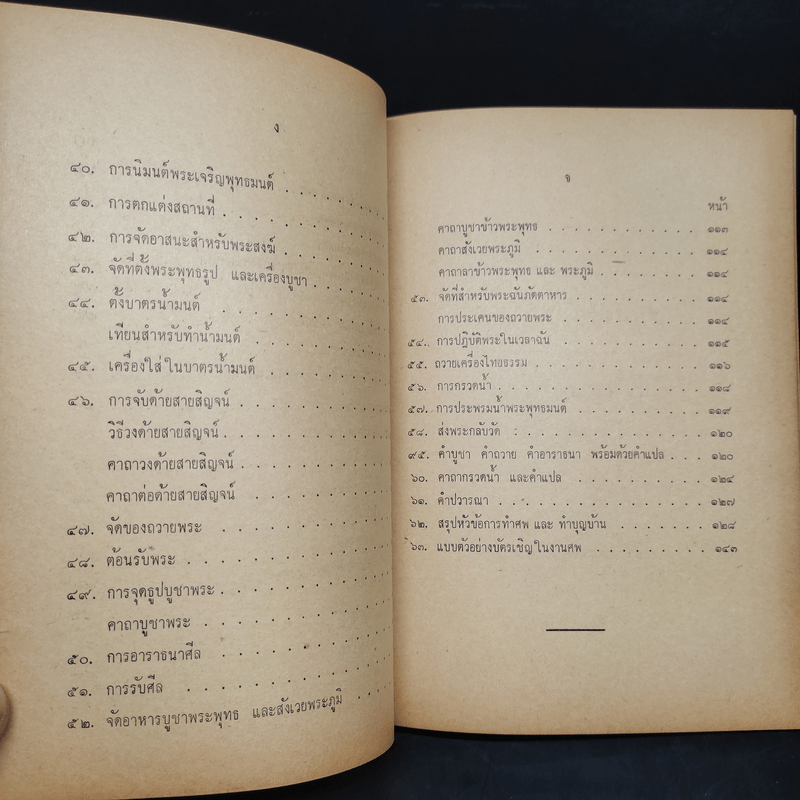 ง
๔๐. การนิมนต์พระเจริญพุทธมนต์ . . . .
๔๑. การตกแต่งสถานที่ . . . . . . .
๔๒. การจัดอาสนะสำหรับพระสงฆ์ . . . .
๔๓. จัดที่ตั้งพระพุทธรูป และเครื่องบูชา . . .
๔๔. ตั้งบาตรน้ำมนต์ . . . . . . .
เทียนสำหรับทำน้ำมนต์ . . . . . .
๔๕. เครื่องใส่ในบาตรน้ำมนต์ . . . . . .
๔๖. การจับด้ายสายสิญจน์ . . . . . .
วิธีวงด้ายสายสิญจน์ . . . . . . .
คาถาวงด้ายสายสิญจน์ . . . . . .
คาถาต่อด้ายสายสิญจน์ . . . . . .
๔๗. จัดของถวายพระ . . . . . . .
๔๘. ต้อนรับพระ . . . . . . . .
๔๙. การจุดธูปบูชาพระ . . . . . . .
คาถาบูชาพระ . . . . . . . .
๕๐. การอาราธนาศีล . . . . . . .
๕๑. การรับศีล . . . . . . . .
๕๒. จัดอาหารบูชาพระพุทธ และสังเวยพระภูมิ . .
จ
หน้า
คาถาบูชาข้าวพระพุทธ . . . . . . . . ๑๑๓
คาถาสังเวยพระภูมิ . . . . . . . . . ๑๑๔
คาถาลาข้าวพระพุทธ และ พระภูมิ . . . . . . ๑๑๔
๕๓. จัดที่สำหรับพระฉันภัตตาหาร . . . . . . . ๑๑๔
การประเคนของถวายพระ . . . . . . . . ๑๑๔
๕๔. การปฏิบัติพระในเวลาฉัน . . . . . . . . ๑๑๕
๕๕. ถวายเครื่องไทยธรรม . . . . . . . . . ๑๑๖
๕๖. การกรวดน้ำ . . . . . . . . . . ๑๑๘
๕๗. การประพรมน้ำพระพุทธมนต์ . . . . . . . ๑๑๙
๕๘. ส่งพระกลับวัด . . . . . . . . . . ๑๒๐
๙๕. คำบูชา คำถวาย คำอาราธนา พร้อมด้วยคำแปล . . . ๑๒๐
๖๐. คาถากรวดน้ำ และคำแปล . . . . . . . ๑๒๔
๖๑. คำปวารณา . . . . . . . . . . ๑๒๗
๖๒. สรุปหัวข้อการทำศพ และ ทำบุญบ้าน . . . . . ๑๒๘
๖๓. แบบตัวอย่างบัตรเชิญในงานศพ . . . . . . ๑๔๓